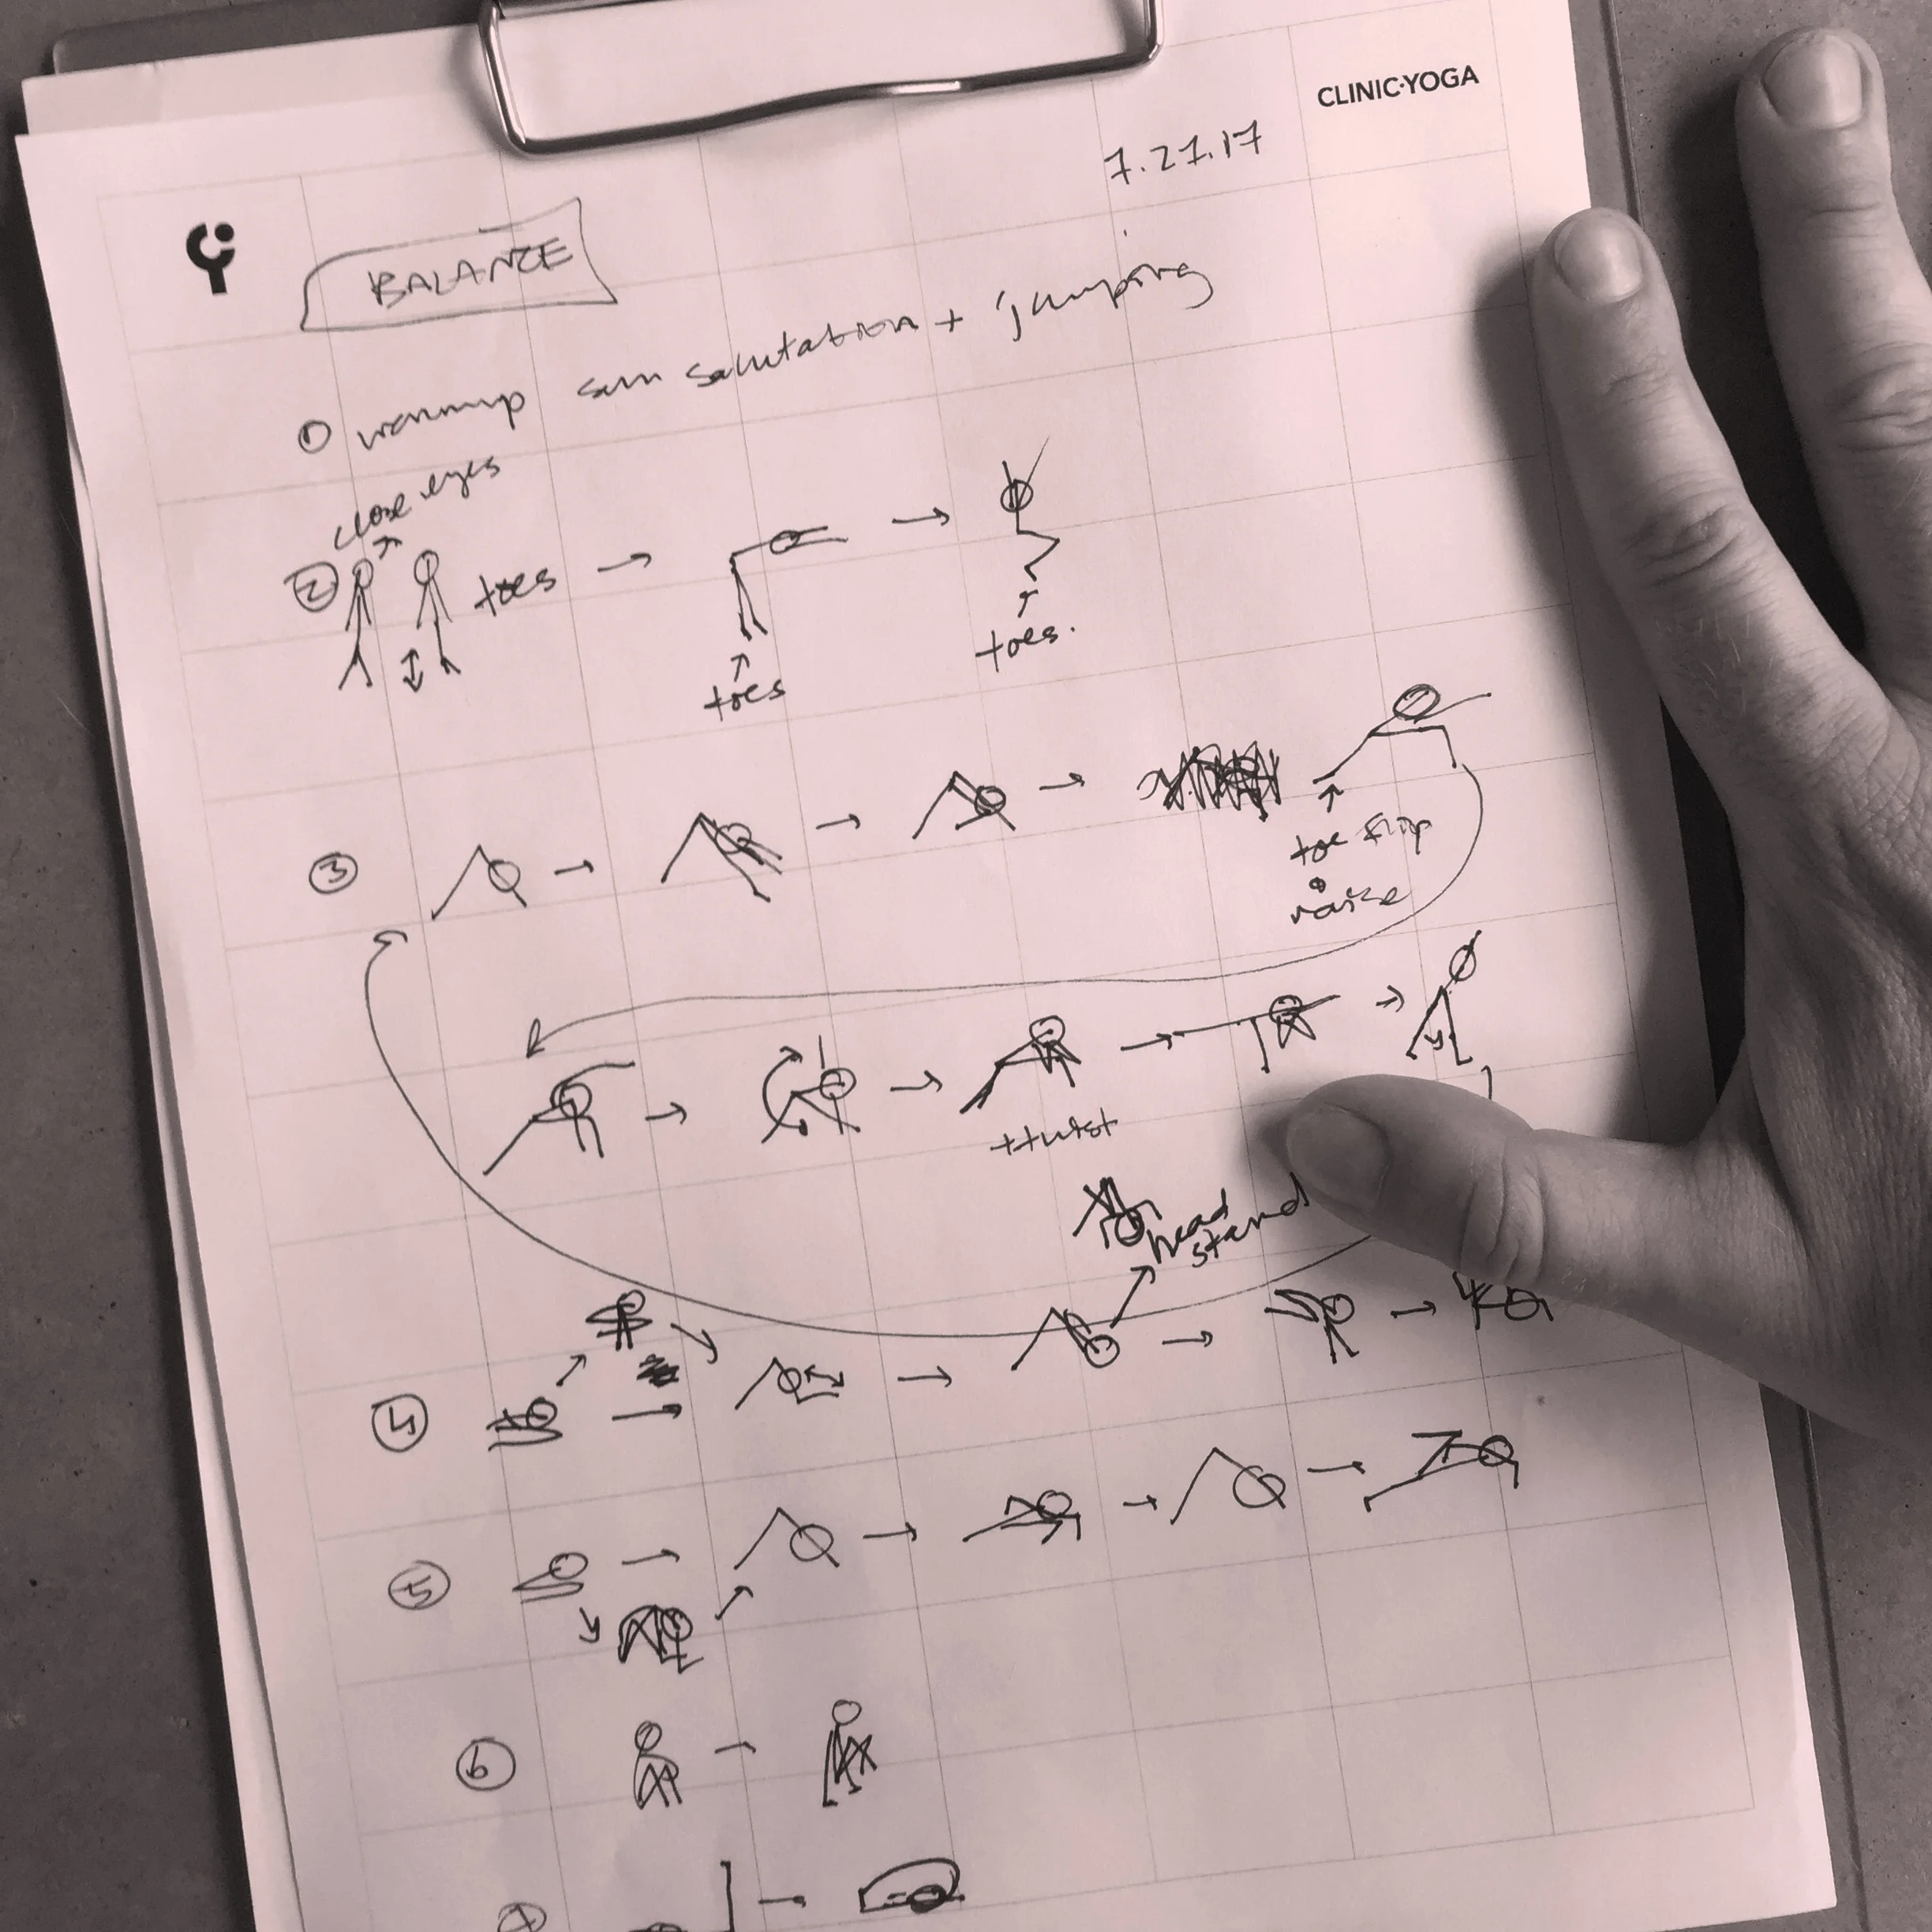 CLINIC·YOGA
7.27.17
BALANCE
① warmup sun salutation + jumping
close eyes
② toes
toes
toes.
③
toe flip
&
raise
+twist
head
stand
④
⑤
⑥